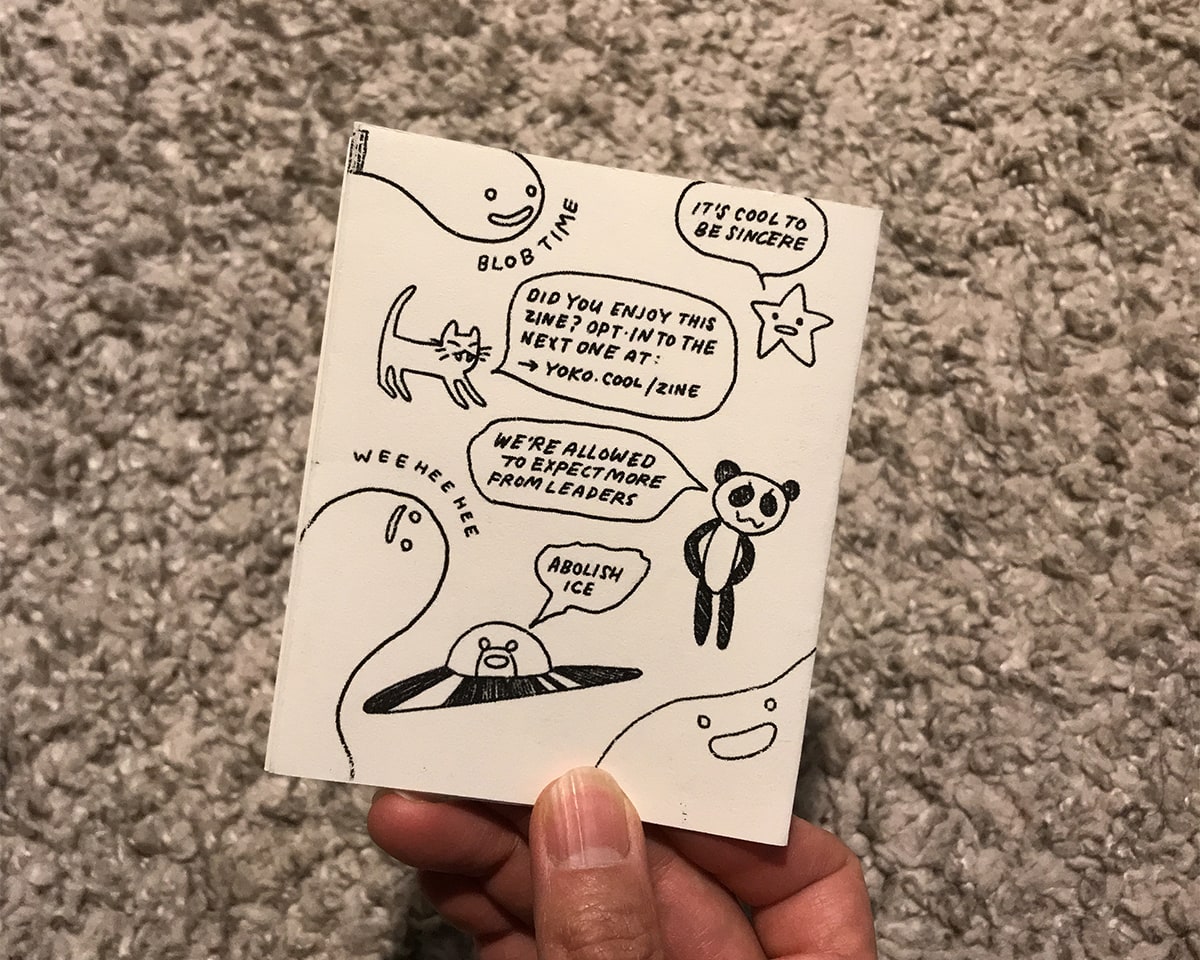 BLOB TIME
IT'S COOL TO
BE SINCERE
DID YOU ENJOY THIS
ZINE? OPT-IN TO THE
NEXT ONE AT:
→ YOKO.COOL/ZINE
WE'RE ALLOWED
TO EXPECT MORE
FROM LEADERS
WEE HEE HEE
ABOLISH
ICE